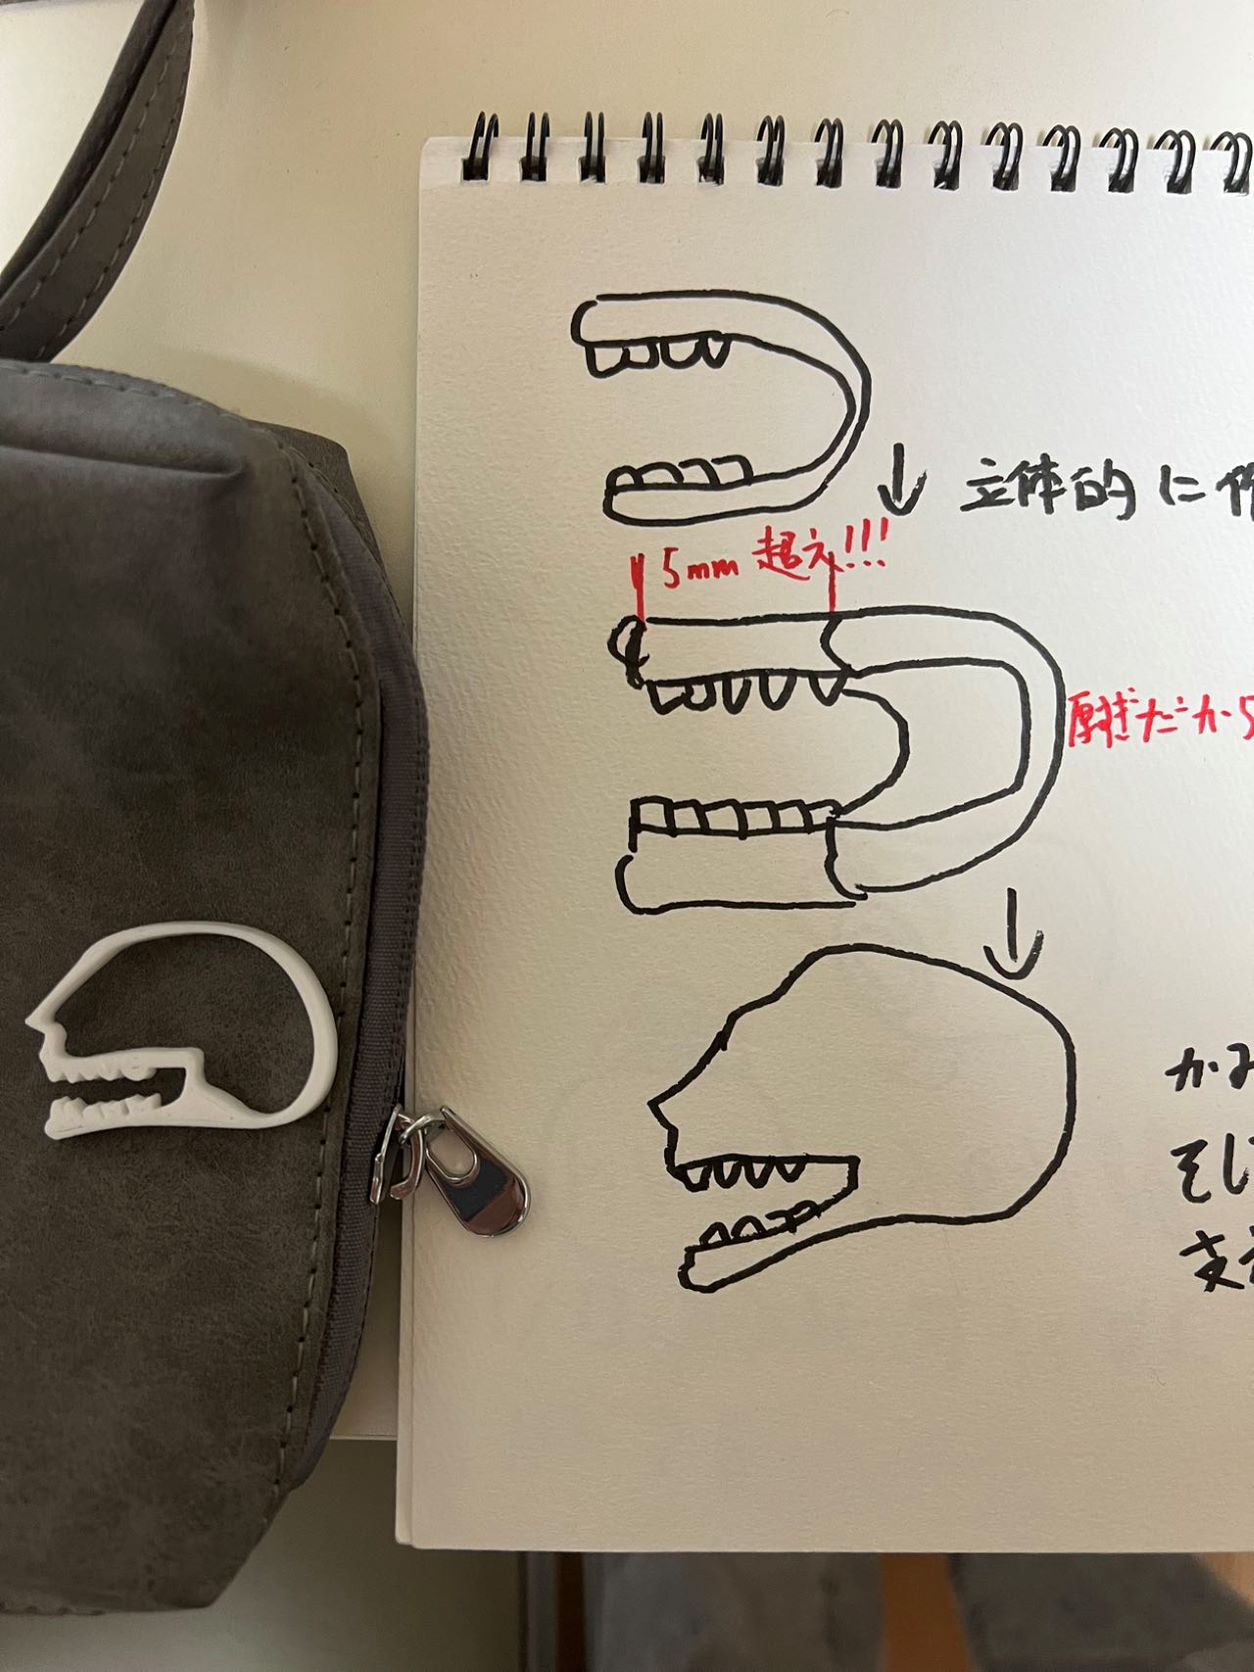 立体的に作
5mm 超え!!!
厚すぎだから
かみ
そし
支え